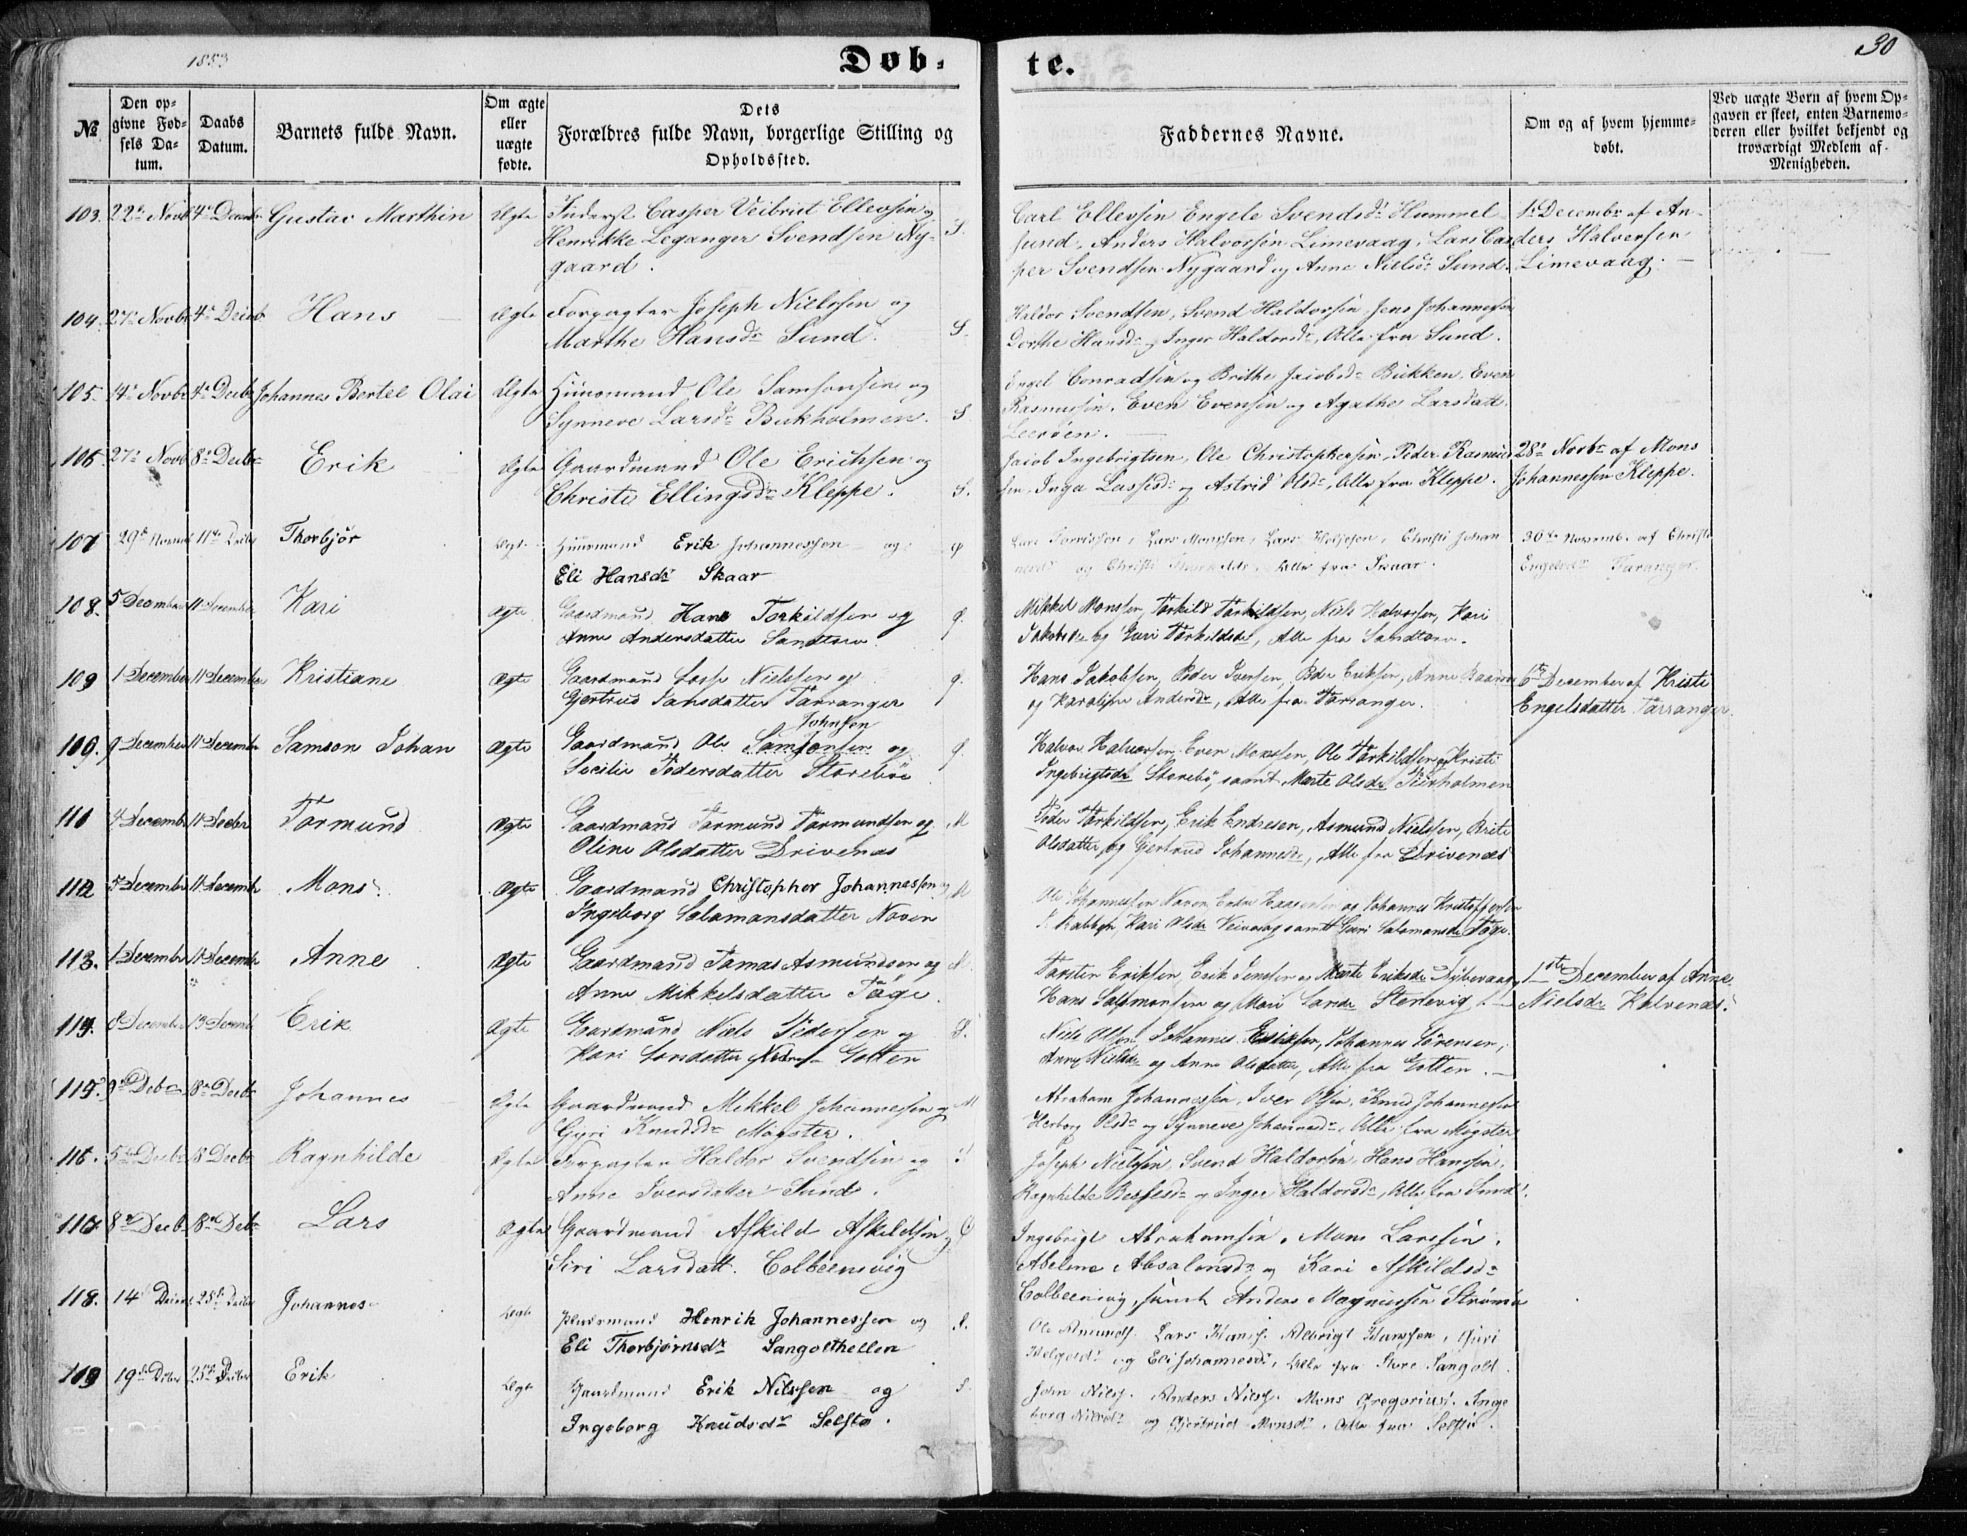 1853
Døb-
te.
30
No
Den op-
givne Fød-
sels Da-
tum.
Daabs
Datum.
Barnets fulde Navn.
Om ægte
eller
uægte
fødte.
Dets
Forældres fulde Navn, borgerlige Stilling og
Opholdssted.
Faddernes Navne.
Om og af hvem hjemme-
døbt.
Ved uægte Børn af hvem Op-
gaven er skeet, enten Barnemo-
deren eller hvilket bekjendt og
troværdigt Medlem af
Menigheden.
103. 22de Novb 4de Decembr Gustav Marthin Ægte Inderst Casper Veibrut Ellevsen og S.
Henrikke Leganger Svendsen Ny-
gaard.
Carl Ellevsen Engele Svendsdr Hummel-
sund, Anders Halvorsen Limevaag, Lars Cas
per Svendsen Nygaard og Anne Nielsdr Sund.
1ste Decembr af An-
ders Halvorsen
Limevaag.
104. 27de Novbr 4de Decbr Hans Ægte Forpagter Joseph Nielssen og
Marthe Hansdr Sund. S.
Haldor Svendsen, Svend Haldorsen Jens Johannessen
Dorthe Hansdr og Inger Haldorsdr, Alle fra Sund.
105. 14de Novbr 4de Decbr Johannes Bertel Olai Ægte Huusmand Ole Samsonsen og
Synneve Larsdr Bukholmen. S
Engel Conradsen og Brithe Jacobsdr Bukken. Even
Rasmussen. Even Evensen og Agathe Larsdatt.
Leerøen.
106. 27de Novb 8de Decbr Erik Ægte Gaardmand Ole Erichsen og
Christi Ellingsdr Kleppe. S.
Jacob Ingebrigtsen, Ole Christophersen, Peder Rasmus
sen, Inga Lassesdr og Astrid Olsdr, Alle fra Kleppe.
28de Novbr af Mons
Johannessen Kleppe.
107 29de Novemb 11te Decbr Thorbjør Ægte Huusmand Erik Johannessen og
Eli Hansdr Skaar
Lars Monssen, Christi Johan
nesdr og Christi Alle fra Skaar.
30te Novemb. af Christi
Engelsdr Taranger.
108. 5 December 11 December Kari Ægte Gaardmand Hans Torkildsen og
Anne Andersdatter Sandtorv.
Mikkel Monsen, Torkild Torkildsen, Niels Halvorsen, Kari
Jakobsdr og Guri Torkildsdr, Alle fra Sandtorv.
109 1 December 11 December Kristiane Ægte Gaardmand Losse Nielssen og
Gjertrud Jansdatter Tarranger
Hans Jakobsen, Peder Iversen, Peder Eriksen, Anne
og Karoline Andersdr, Alle fra Tarranger.
6te December af Kristi
Engelsdatter Tarranger.
110. 9 December 11 Decembr Samson Johan Ægte Gaardmand Ole Samsonsen og
Johnsen
Secilie Pedersdatter Storebøe
Halvor Halvorsen, Even Monssen, Ole Torkildsen og Kristi
Ingebrigtsdr Storebø, samt Marte Olsdr
111 4 Decembr 11 Decbr Tormund Ægte Gaardmand Tormund Tormundsen og M
Oline Olsdatter Drivenæs
Peder Torkildsen, Erik Endresen, Asmund Nielssen, Brite
Olsdatter og Gjertrud Johannesdr, Alle fra Drivenæs
112 5 December 11 Decembr Mons Ægte Gaardmand Christopher Johannessen og M
Ingeborg Salamonsdatter Noven
Ole Johannessen Noven, og Johannes Kristoffersen
Kari Olsdr samt Guri Salomonsdr Føge.
113. 1 December 11 Decembr Anne Ægte Gaardmand Tomas Asmundsen og M
Anne Mikkelsdatter Føge.
Torsten Eriksen, Erik Jensen og Marte Eriksdr
Hans Salomonsen og Mari Stenevig.
1ste December af Anne
Nielsdr Kalvenæs.
114. 8 December 13 Decemb Erik Ægte Gaardmand Niels Pedersen og S.
Kari Larsdatter Gotten
Niels Olsen, Johannes Eriksen, Johannes Sørensen,
Anne Nielsdr og Anne Olsdatter, Alle fra Gotten.
115. 9de Debr 18de Decbr Johannes Ægte Gaardmand Mikkel Johannessen og M
Gyri Knudsdr Møgster.
Abraham Johannessen, Iver Olsen, Knud Johannessen
Herborg Olsdr og Synneve Johannesdr, Alle fra Møgster
116. 5te Decbr 18 Decbr Ragnhilde Ægte Forpagter Haldor Svendsen og S
Anne Iversdatter Sund.
Joseph Nielssen, Svend Haldorsen, Hans Hanssen,
Ragnhilde og Inger Haldorsdr, Alle fra Sund.
117 8de Decb 18de Debr Lars Ægte Gaardmand Askild Askildsen og
Siri Larsdatt. Colbeensvig
Ingebrigt Abrahamsen, Mons Larssen,
Abelone Absalonsdr og Kari Askildsdr
Colbeensvig, samt Anders Magnussen Strømø
118. 14de 25de Decbr Johannes Ægte Huusmand Henrik Johannessen og S.
Eli Thorbjørnsdr Sangolthellen
Ole Amunds. Lars Hans. Albrigt Hanssen, Guri
Helgesdr og Eli Johannesdr, Alle fra Store Sangolt.
119 19de Decbr 25de Decbr Erik Ægte Gaardmand Erik Nilssen og S.
Ingeborg Knudsdr Selstø.
John Nilss. Anders Nilss. Mons Gregorius. Inge
borg Nilsdr og Gjertrud Monsdr. Alle fra Selstø.